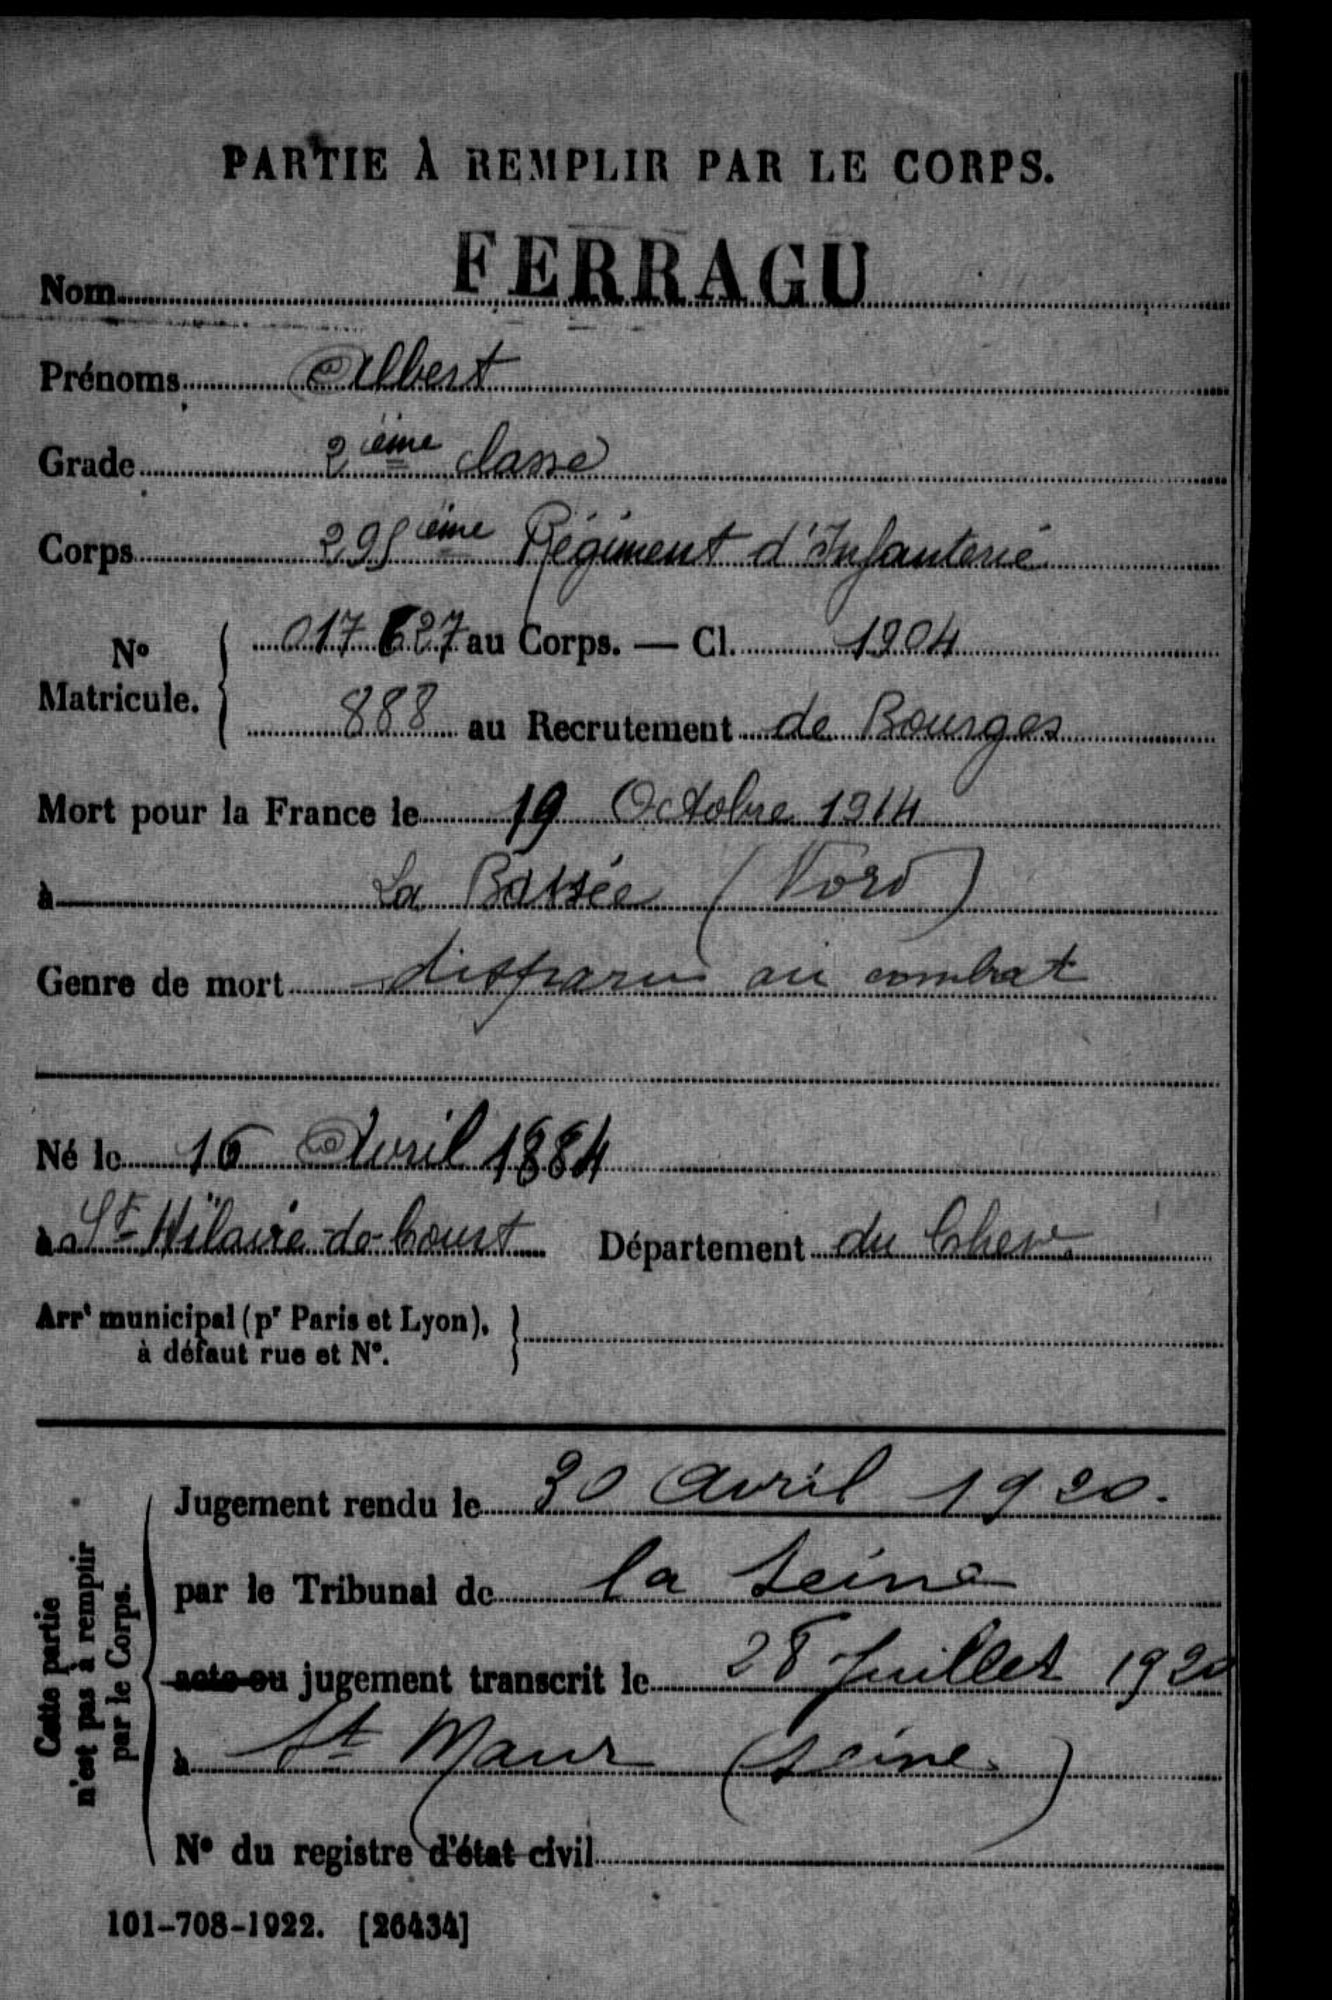 PARTIE À REMPLIR PAR LE CORPS.
Nom FERRAGU
Prénoms Albert
Grade 2ième classe
Corps 295ième Régiment d'Infanterie
No Matricule. 017627 au Corps. — Cl. 1904
888 au Recrutement de Bourges
Mort pour la France le 19 Octobre 1914
à La Bassée (Nord)
Genre de mort disparu au combat
Né le 16 Avril 1884
à St-Hilaire-de-Court Département du Cher
Arrt municipal (pr Paris et Lyon), à défaut rue et No.
Cette partie n'est pas à remplir par le Corps.
Jugement rendu le 30 Avril 1920.
par le Tribunal de la Seine
acte ou jugement transcrit le 28 Juillet 1920
à St Maur (Seine)
No du registre d'état civil
101-708-1922. [26434]